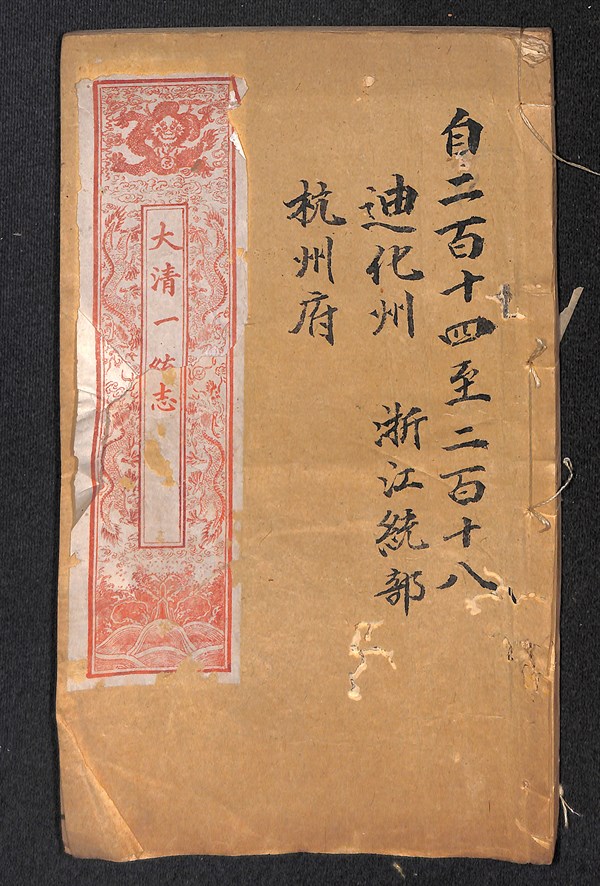 自二百十四至二百十八
迪化州 浙江統部
杭州府
大清一統志